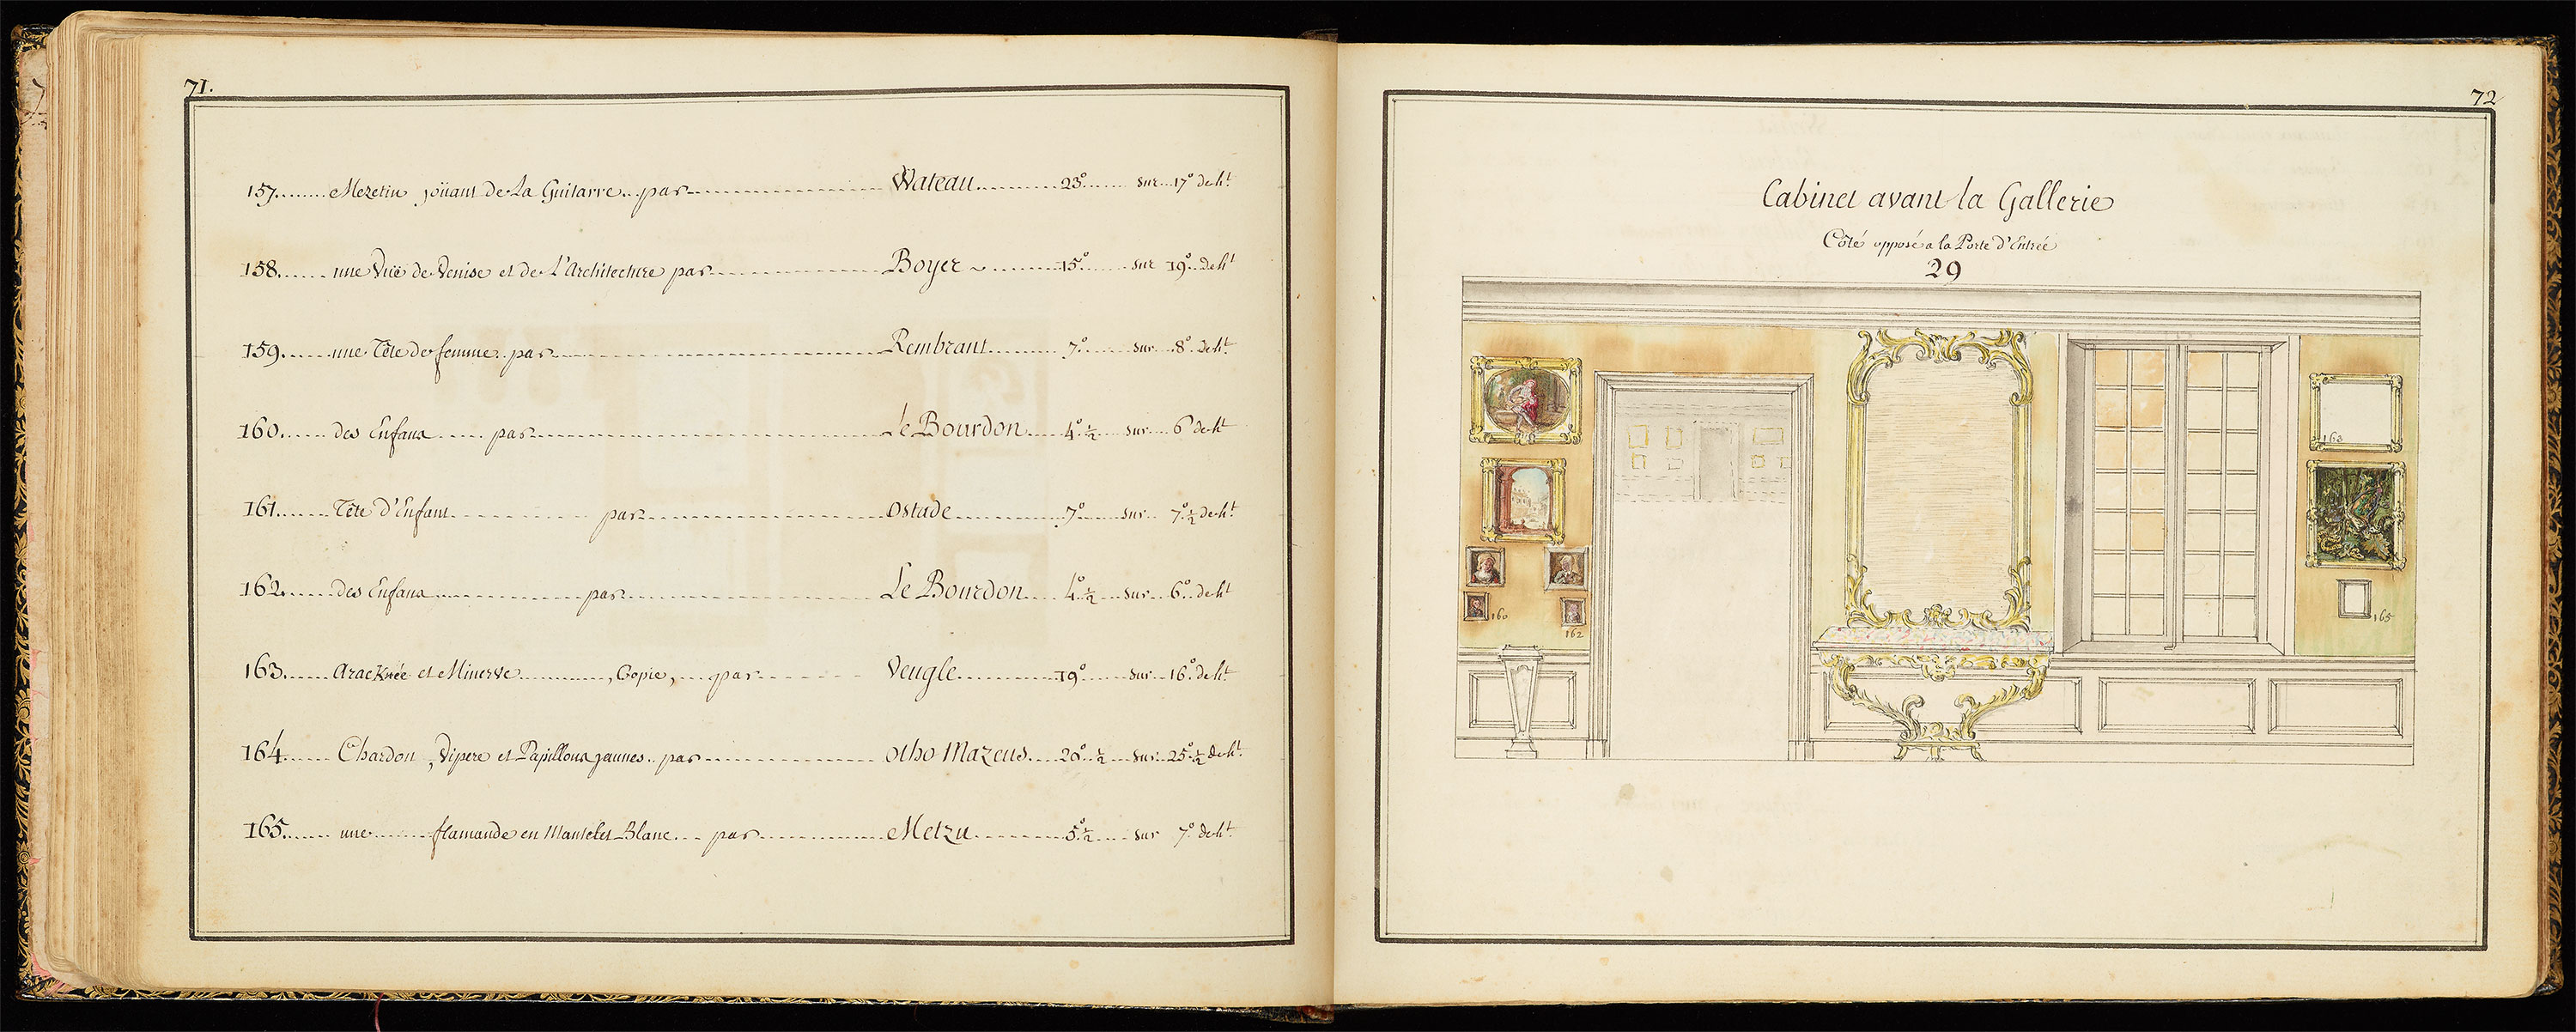 71.
157........ Mezetin joüant de La Guitarre.. par.................... Wateau............ 23°....... sur... 17° de ht
158....... une Vuë de Venise et de L'Architecture par.................... Boyer ~ ........... 15°....... sur 19°.. de ht
159....... une Tête de femme.. par.................... Rembrant......... 7°....... sur... 8°. de ht.
160....... des Enfans ...... par.................... Le Bourdon..... 4° ½..... sur.... 6° de ht
161....... Tête d'Enfant.................... par.................... Ostade............... 7°...... sur... 7° ½ de ht.
162....... des Enfans.................... par.................... Le Bourdon.... 4° ½.... sur... 6°. de ht
163...... Aracknée et Minerve............, Copie,.... par.......... Veugle............... 19°....... sur... 16° de ht.
164....... Chardon, Vipere et Papillons jaunes.. par.................... Otho Mazeus.... 20° ½.... sur. 25° ½ de ht.
165....... une......... flamande en Mantelet Blanc.... par................ Metzu............. 5° ½..... sur 7° de ht.
72
Cabinet avant la Gallerie
Côté opposé a la Porte d'Entrée
29
163
160
162
165